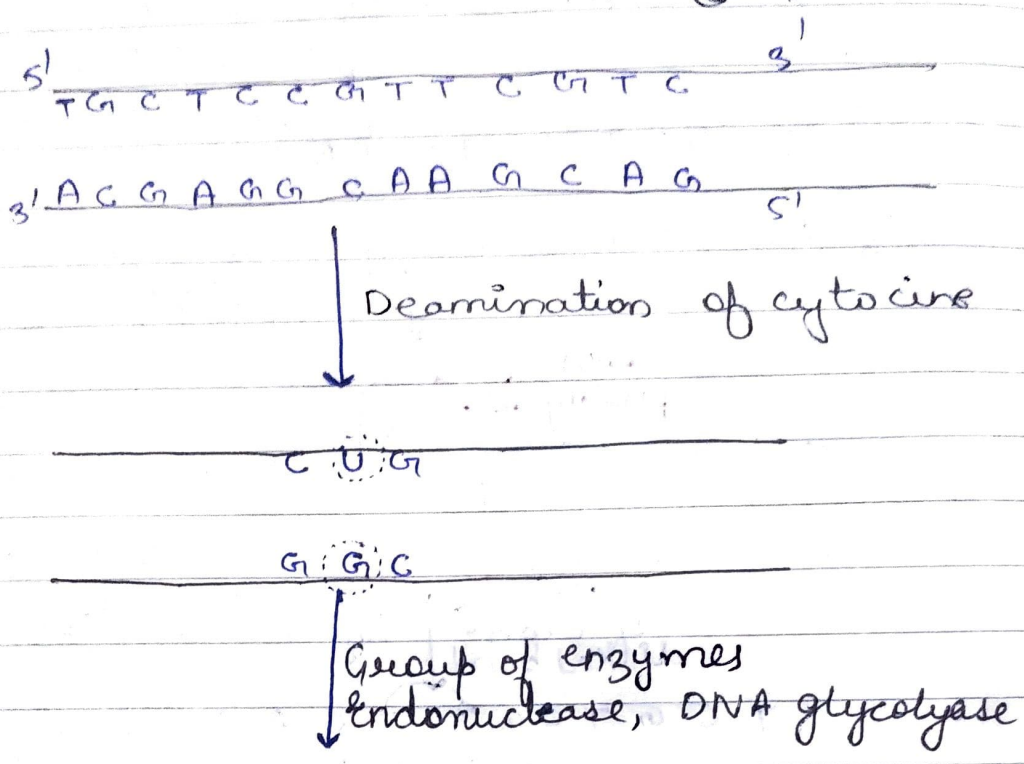 5' 3'
T G C T C C G T T C G T C
3' A C G A G G C A A G C A G
5'
Deamination of cytocine
C U G
G G C
Group of enzymes
Endonuclease, DNA glycolyase